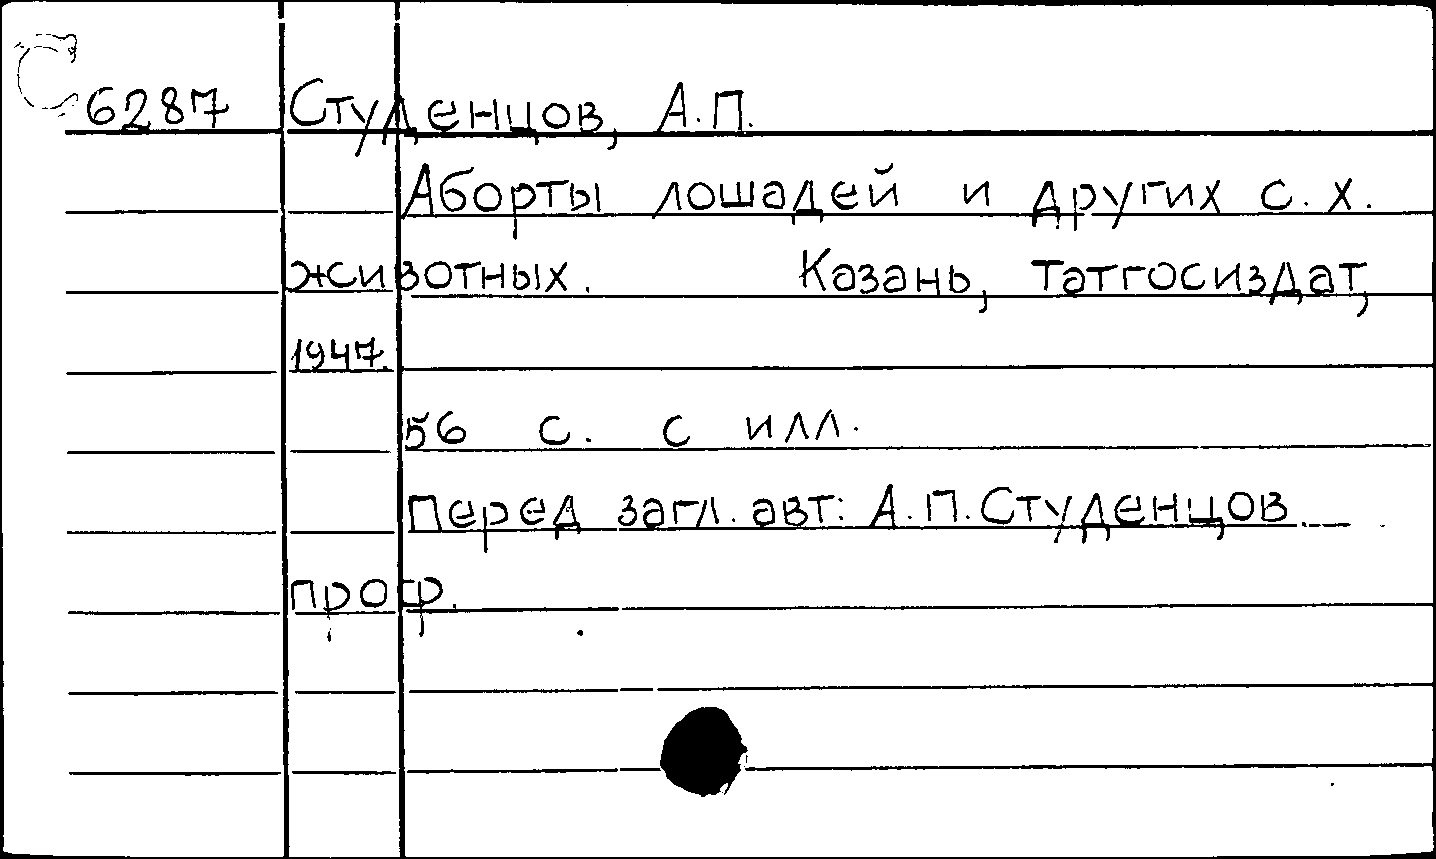 С 6287 Студенцов, А.П.
Аборты лошадей и других с. х.
животных. Казань, Татгосиздат,
1947.
56 с. с илл.
Перед загл. авт: А.П.Студенцов
проф.